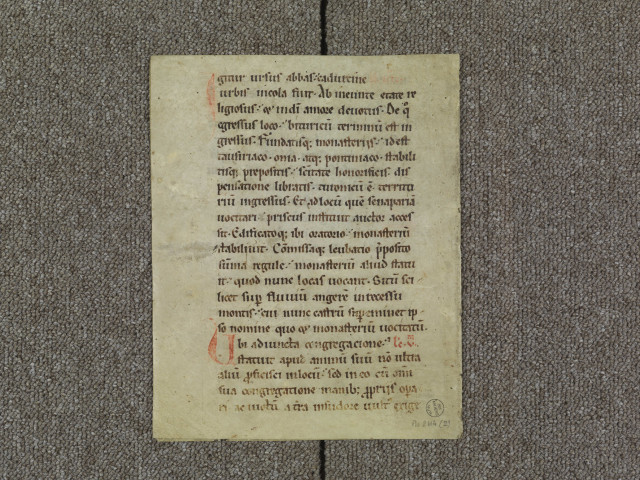 gitur ursus abbas. cadurcine
urbis incola fuit. Ab ineunte etate re
ligiosus. et in dm̄ amore deuotus. De q̊
gressus loco. bituricū terminū est in
gressus. Fundatisq; monasteriis. id est
tausiriaco. onia. atq; pontiniaco. stabili
tisq; prepositis. scītate honorificis dis
pensatione libratis. turonicū ē territo
riū ingressus. Et ad locū quē senapariā
uocitari. priscus instituit auctor acces
sit. Edificatoq; ibi oratorio. monasteriū
stabiliuit. Cōmissaq; leubatio p̄posito
sūma regule. monasteriū aliud statu
it. quod nunc locas uocant. Sitū sci
licet sup̄ fluuiū angere in recessu
montis. cui nunc castrū sup̄eminet ip
so nomine quo et monasteriū uocitatū.
Vbi adiuncta congregacione. le.
statuit apud animū suū nō ultra
aliū p̄ficisci in locū. sed in eo cū om̄i
sua congregatione manib; p̄priis opa
ri ac uictū a t̄ra in sudore uult̄ exige